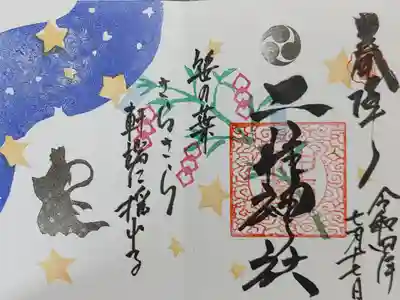 二柱神社
令和四年
七月十七日
笹の葉
さらさら
軒端に揺れる